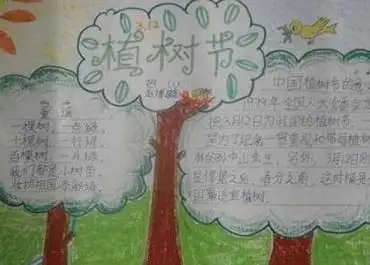 3.12
植树节
四
童谣
一棵树，一点绿，
十棵树，一
百棵树，一片绿
我们都是小树苗
祖国添新绿
中国植树节的意
1979年全国人大常委会
把3月12日为我国的植树节，
是为了纪念一贯重视和倡导植树
林的孙中山先生。另外，3月12日
是惊蛰之后，春分之前，这时候是
国最适宜植树。